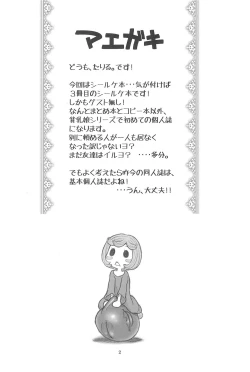 マエガキ
どうも、たりる。です!
今回はシールケ本・・・気が付けば
3冊目のシールケ本です!
しかもゲスト無し!
なんとまとめ本とコピー本以外、
甘乳娘シリーズで初めての個人誌
になります。
別に頼める人が一人も居なく
なった訳じゃないヨ?
まだ友達はイルヨ? ・・・・多分。
でもよく考えたら昨今の同人誌は、
基本個人誌だよね!
・・・うん、大丈夫!!
2